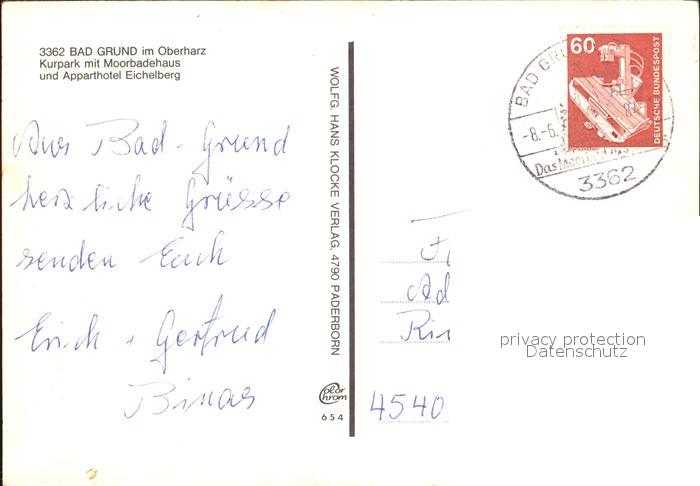 3362 BAD GRUND im Oberharz
Kurpark mit Moorbadehaus
und Apparthotel Eichelberg
Aus Bad-Grund
herzliche Grüsse
senden Euch
Erich + Gertrud
Binas
WOLFG. HANS KLOCKE VERLAG, 4790 PADERBORN
Color
Chrom
654
60
DEUTSCHE BUNDESPOST
BAD GRU
-8.-6.
Das Moor
3362
Ad
4540
privacy protection
Datenschutz